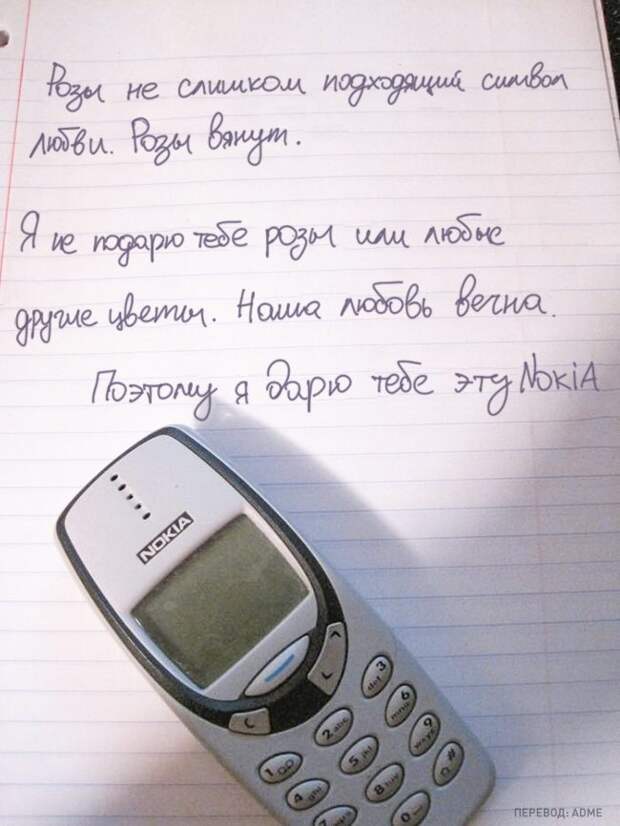 Розы не слишком подходящий символ
любви. Розы вянут.
Я не подарю тебе розы или любые
другие цветы. Наша любовь вечна.
Поэтому я дарю тебе эту NOKiA
NOKIA
3 def
2 abc
6 mno
1
5 jkl
9 wxyz
4 ghi
8 tuv
#
7
0
ПЕРЕВОД: ADME